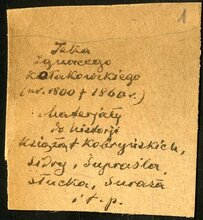 1
Teka
Ignacego
Kołakowskiego
(ur. 1800 † 1860 r.)
Materjały
do historji
Książąt Kobryńskich,
Sidry, Supraśla,
Słucka, Suraża
i t. p.